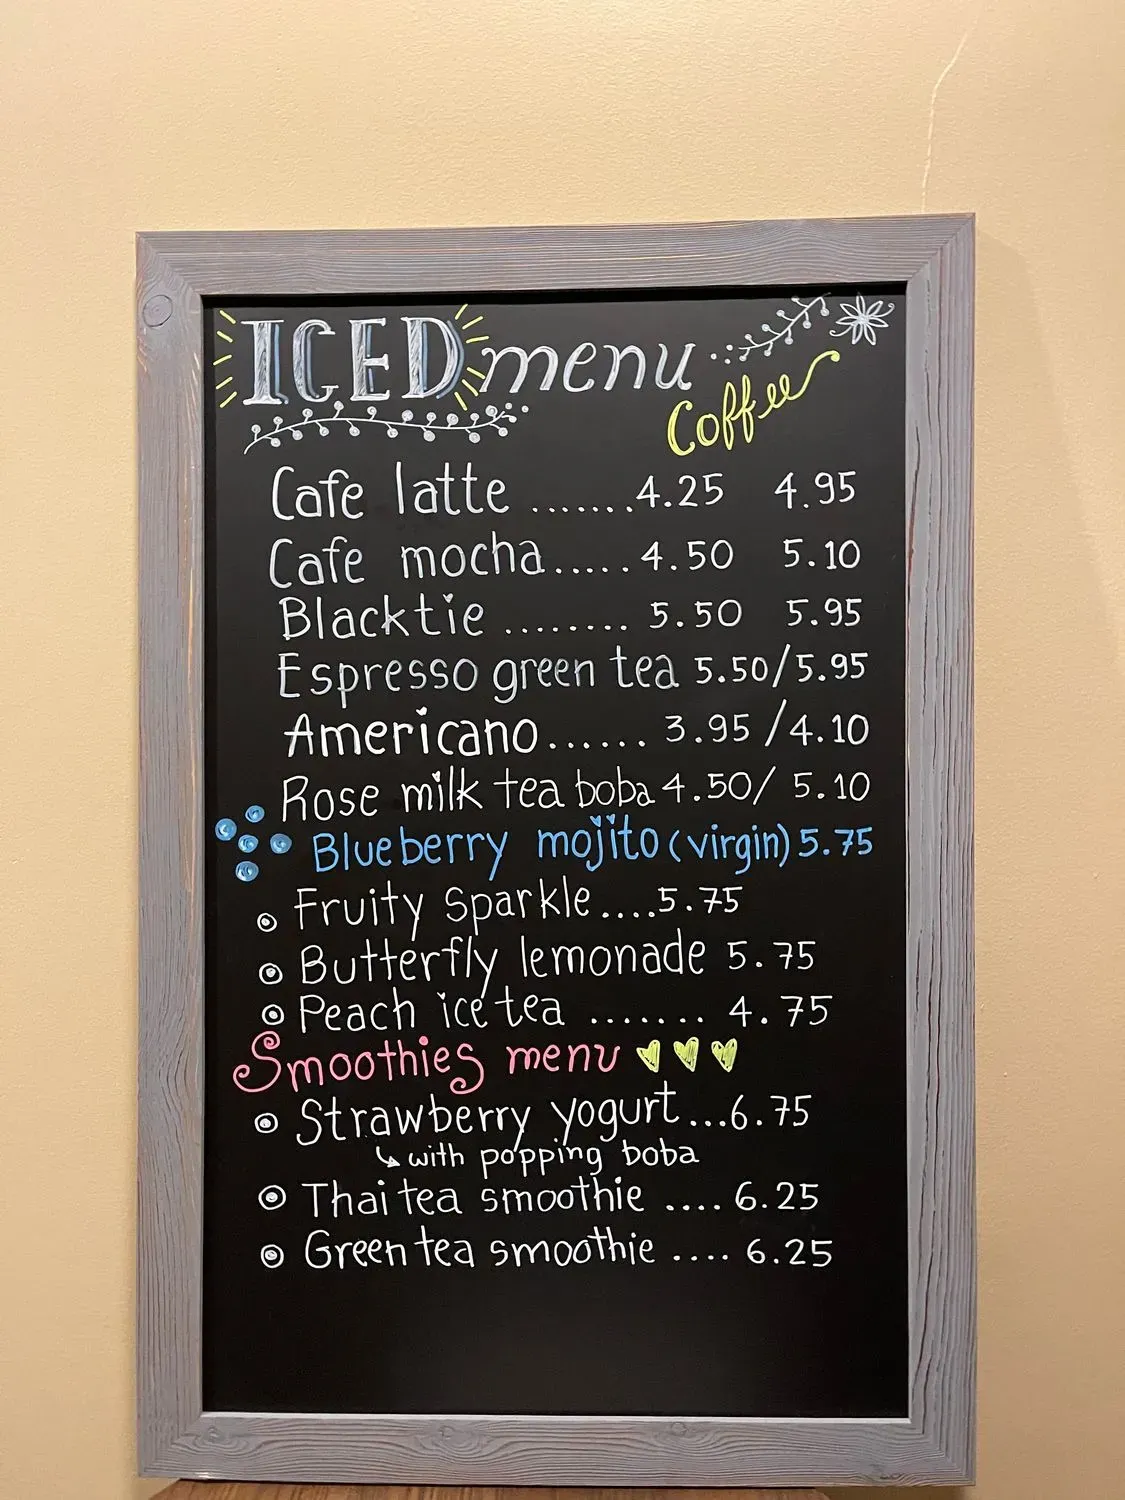 ICED menu
Coffee
Cafe latte .......4.25 4.95
Cafe mocha.....4.50 5.10
Blacktie ........ 5.50 5.95
Espresso green tea 5.50/5.95
Americano...... 3.95 /4.10
Rose milk tea boba 4.50/ 5.10
Blueberry mojito (virgin) 5.75
Fruity Sparkle....5.75
Butterfly lemonade 5.75
Peach ice tea ....... 4.75
Smoothies menu
Strawberry yogurt...6.75
with popping boba
Thai tea smoothie .... 6.25
Green tea smoothie .... 6.25